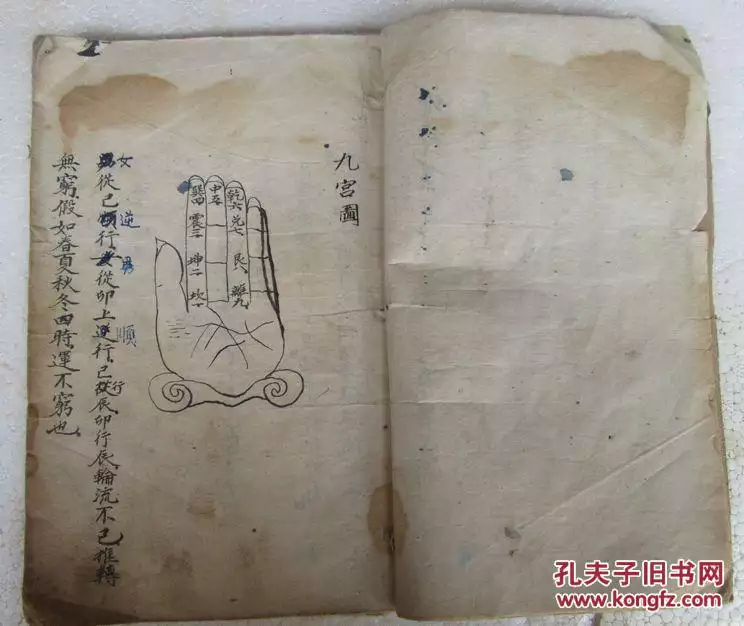 九宮圖
巽四 震三 坤二 坎一
中五
乾六 兌七 艮八 離九
從巳順行女從卯上逆行已從辰卯行辰輪流不已推轉
女逆男順
行
無窮假如春夏秋冬四時運不窮也
孔夫子旧书网
www.kongfz.com